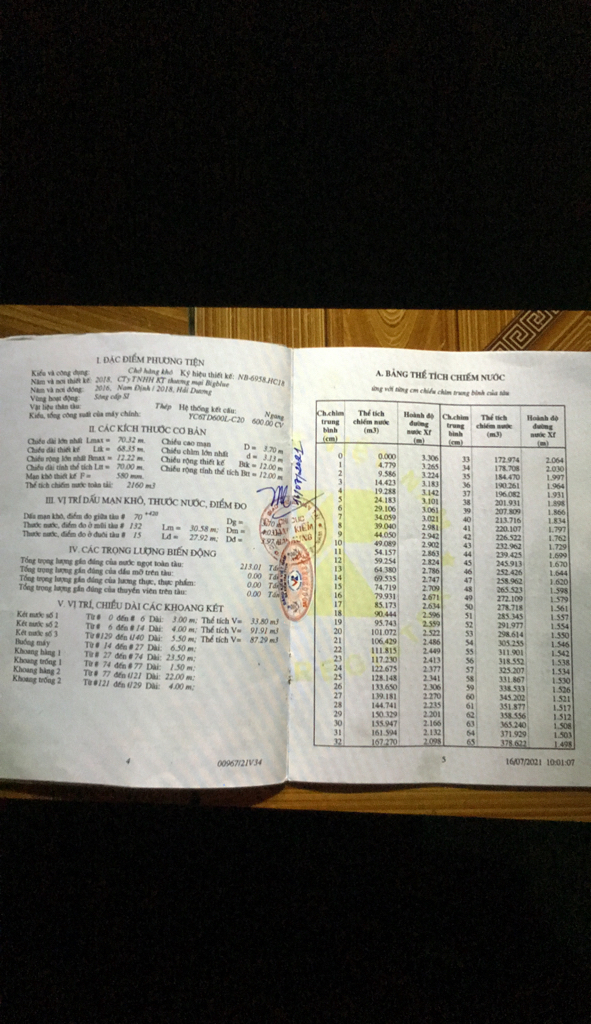 I. ĐẶC ĐIỂM PHƯƠNG TIỆN
Kiểu và công dụng: Chở hàng khô Ký hiệu thiết kế: NB-6958.HC18
Năm và nơi thiết kế: 2018, CTy TNHH KT thương mại Bigblue
Năm và nơi đóng: 2016, Nam Định / 2018, Hải Dương
Vùng hoạt động: Sông cấp SI
Vật liệu thân tàu: Thép Hệ thống kết cấu: Ngang
Kiểu, tổng công suất của máy chính: YC6TD600L-C20 600.00 CV
II. CÁC KÍCH THƯỚC CƠ BẢN
Chiều dài lớn nhất Lmax = 70.32 m. Chiều cao mạn D = 3.70 m
Chiều dài thiết kế Ltk = 68.35 m. Chiều chìm lớn nhất d = 3.13 m
Chiều rộng lớn nhất Bmax = 12.22 m. Chiều rộng thiết kế Btk = 12.00 m
Chiều dài tính thể tích Ltt = 70.00 m. Chiều rộng tính thể tích Btt = 12.00 m
Mạn khô thiết kế F = 580 mm.
Thể tích chiếm nước toàn tải: 2160 m3
III. VỊ TRÍ DẤU MẠN KHÔ, THƯỚC NƯỚC, ĐIỂM ĐO
Dấu mạn khô, điểm đo giữa tàu # 70 +420 Dg =
Thước nước, điểm đo ở mũi tàu # 132 Lm = 30.58 m; Dm =
Thước nước, điểm đo ở đuôi tàu # 15 Ld = 27.92 m; Dd =
IV. CÁC TRỌNG LƯỢNG BIẾN ĐỘNG
Tổng trọng lượng gần đúng của nước ngọt toàn tàu: 213.01 Tấn
Tổng trọng lượng gần đúng của dầu mỡ trên tàu: 0.00 Tấn
Tổng trọng lượng gần đúng của lương thực, thực phẩm: 0.00 Tấn
Tổng trọng lượng gần đúng của thuyền viên trên tàu: 0.00 Tấn
V. VỊ TRÍ, CHIỀU DÀI CÁC KHOANG KÉT
Két nước số 1 Từ # 0 đến # 6 Dài: 3.00 m; Thể tích V= 33.80 m3
Két nước số 2 Từ # 6 đến # 14 Dài: 4.00 m; Thể tích V= 91.91 m3
Két nước số 3 Từ #129 đến #140 Dài: 5.50 m; Thể tích V= 87.29 m3
Buồng máy Từ # 14 đến # 27 Dài: 6.50 m;
Khoang hàng 1 Từ # 27 đến # 74 Dài: 23.50 m;
Khoang trống 1 Từ # 74 đến # 77 Dài: 1.50 m;
Khoang hàng 2 Từ # 77 đến #121 Dài: 22.00 m;
Khoang trống 2 Từ #121 đến #129 Dài: 4.00 m;
4 00967/21V34
A. BẢNG THỂ TÍCH CHIẾM NƯỚC
ứng với từng cm chiều chìm trung bình của tàu
Ch.chìm trung bình (cm) Thể tích chiếm nước (m3) Hoành độ đường nước Xf (m) Ch.chìm trung bình (cm) Thể tích chiếm nước (m3) Hoành độ đường nước Xf (m)
0 0.000 3.306 33 172.974 2.064
1 4.779 3.265 34 178.708 2.030
2 9.586 3.224 35 184.470 1.997
3 14.423 3.183 36 190.261 1.964
4 19.288 3.142 37 196.082 1.931
5 24.183 3.101 38 201.931 1.898
6 29.106 3.061 39 207.809 1.866
7 34.059 3.021 40 213.716 1.834
8 39.040 2.981 41 220.107 1.797
9 44.050 2.942 42 226.522 1.762
10 49.089 2.902 43 232.962 1.729
11 54.157 2.863 44 239.425 1.699
12 59.254 2.824 45 245.913 1.670
13 64.380 2.786 46 252.426 1.644
14 69.535 2.747 47 258.962 1.620
15 74.719 2.709 48 265.523 1.598
16 79.931 2.671 49 272.109 1.579
17 85.173 2.634 50 278.718 1.561
18 90.444 2.596 51 285.345 1.557
19 95.743 2.559 52 291.977 1.554
20 101.072 2.522 53 298.614 1.550
21 106.429 2.486 54 305.255 1.546
22 111.815 2.449 55 311.901 1.542
23 117.230 2.413 56 318.552 1.538
24 122.675 2.377 57 325.207 1.534
25 128.148 2.341 58 331.867 1.530
26 133.650 2.306 59 338.533 1.526
27 139.181 2.270 60 345.202 1.521
28 144.741 2.235 61 351.877 1.517
29 150.329 2.201 62 358.556 1.512
30 155.947 2.166 63 365.240 1.508
31 161.594 2.132 64 371.929 1.503
32 167.270 2.098 65 378.622 1.498
5 16/07/2021 10:01:07